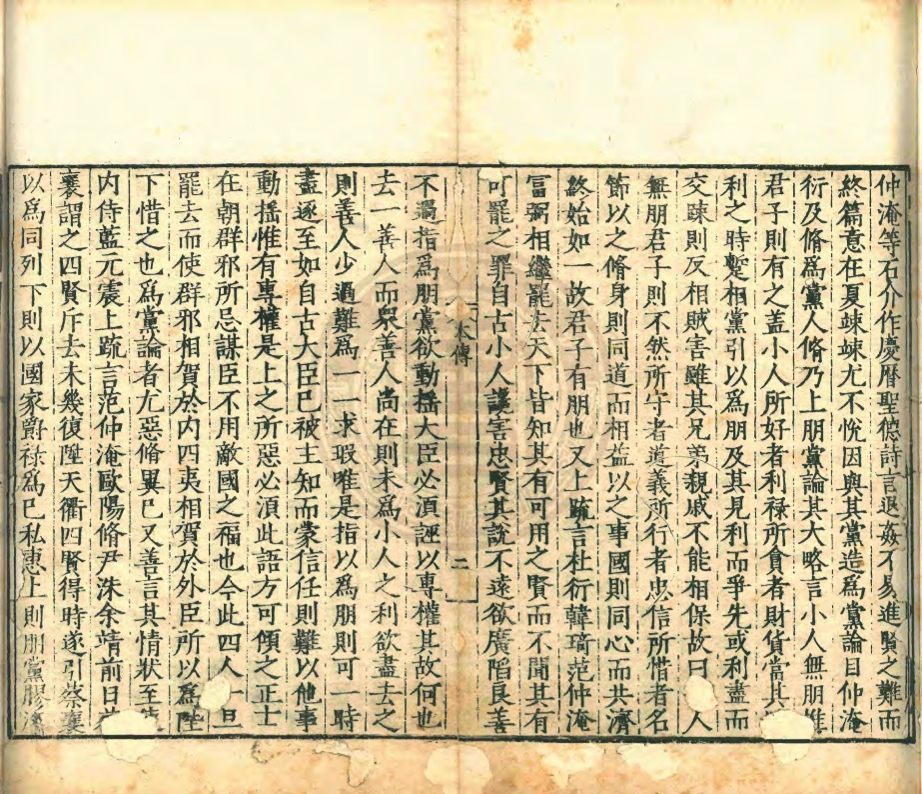 仲淹等石介作慶曆聖德詩言退姦不易進賢之難而
終篇意在夏竦竦尤不悅因與其黨造為黨論目仲淹
衍及脩為黨人脩乃上朋黨論其大略言小人無朋惟
君子則有之盖小人所好者利祿所貪者財貨當其
利之時蹔相黨引以為朋及其見利而爭先或利盡而
交踈則反相賊害雖其兄弟親戚不能相保故曰人
無朋君子則不然所守者道義所行者忠信所惜者名
節以之脩身則同道而相益以之事國則同心而共濟
終始如一故君子有朋也又上䟽言杜衍韓琦范仲淹
冨弼相繼罷去天下皆知其有可用之賢而不聞其有
可罷之罪自古小人讒害忠賢其說不遠欲廣陷良善
本傳
二
不過指為朋黨欲動揺大臣必須誣以專權其故何也
去一善人而衆善人尚在則未為小人之利欲盡去之
則善人少過難為一一求瑕唯是指以為朋則可一時
盡逐至如自古大臣已被主知而蒙信任則難以他事
動揺惟有專權是上之所惡必須此語方可傾之正士
在朝群邪所忌謀臣不用敵國之福也今此四人一旦
罷去而使群邪相賀於内四夷相賀於外臣所以為陛
下惜之也為黨論者尤惡脩異已又善言其情狀至使
内侍藍元震上䟽言范仲淹歐陽脩尹洙余靖前日
襄謂之四賢斥去未幾復陞天衢四賢得時遂引蔡襄
以為同列下則以國家爵祿為已私惠上則朋黨膠